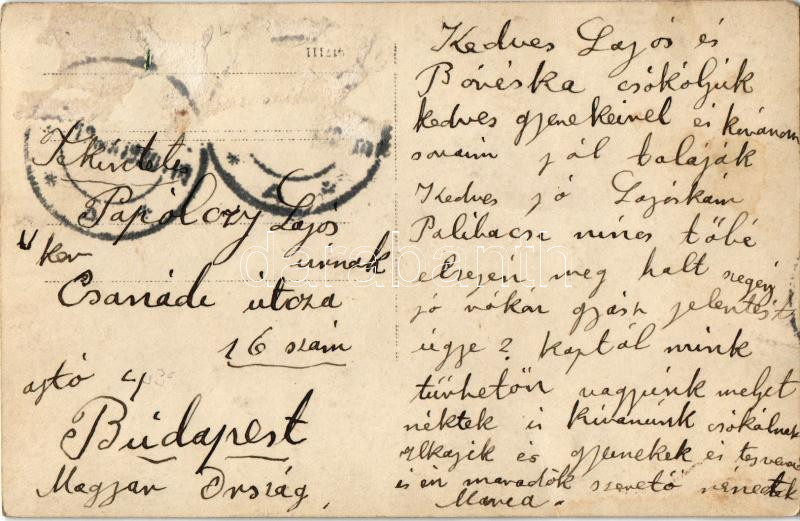 Tekintetes
Papólczy Lajós
Ker urnak
Csanádi útcza
16 szám
ajtó 4
Búdapest
Magyar Ország
Kedves Lajós és
Böréska csókóljuk
kedves gyenekeinel és kivánom
soraim jól talaják
Kedves jó Lajóskám
Palibacsi nincs többé
elsején meg halt szegény
jó rókon gyász jelentést
úgye ? kaptál mink
türhetőn vagyunk melyet
néktek is kivánunk csókólnak
és gyenekek és
is én maradok szerető nénédtek
darabanth